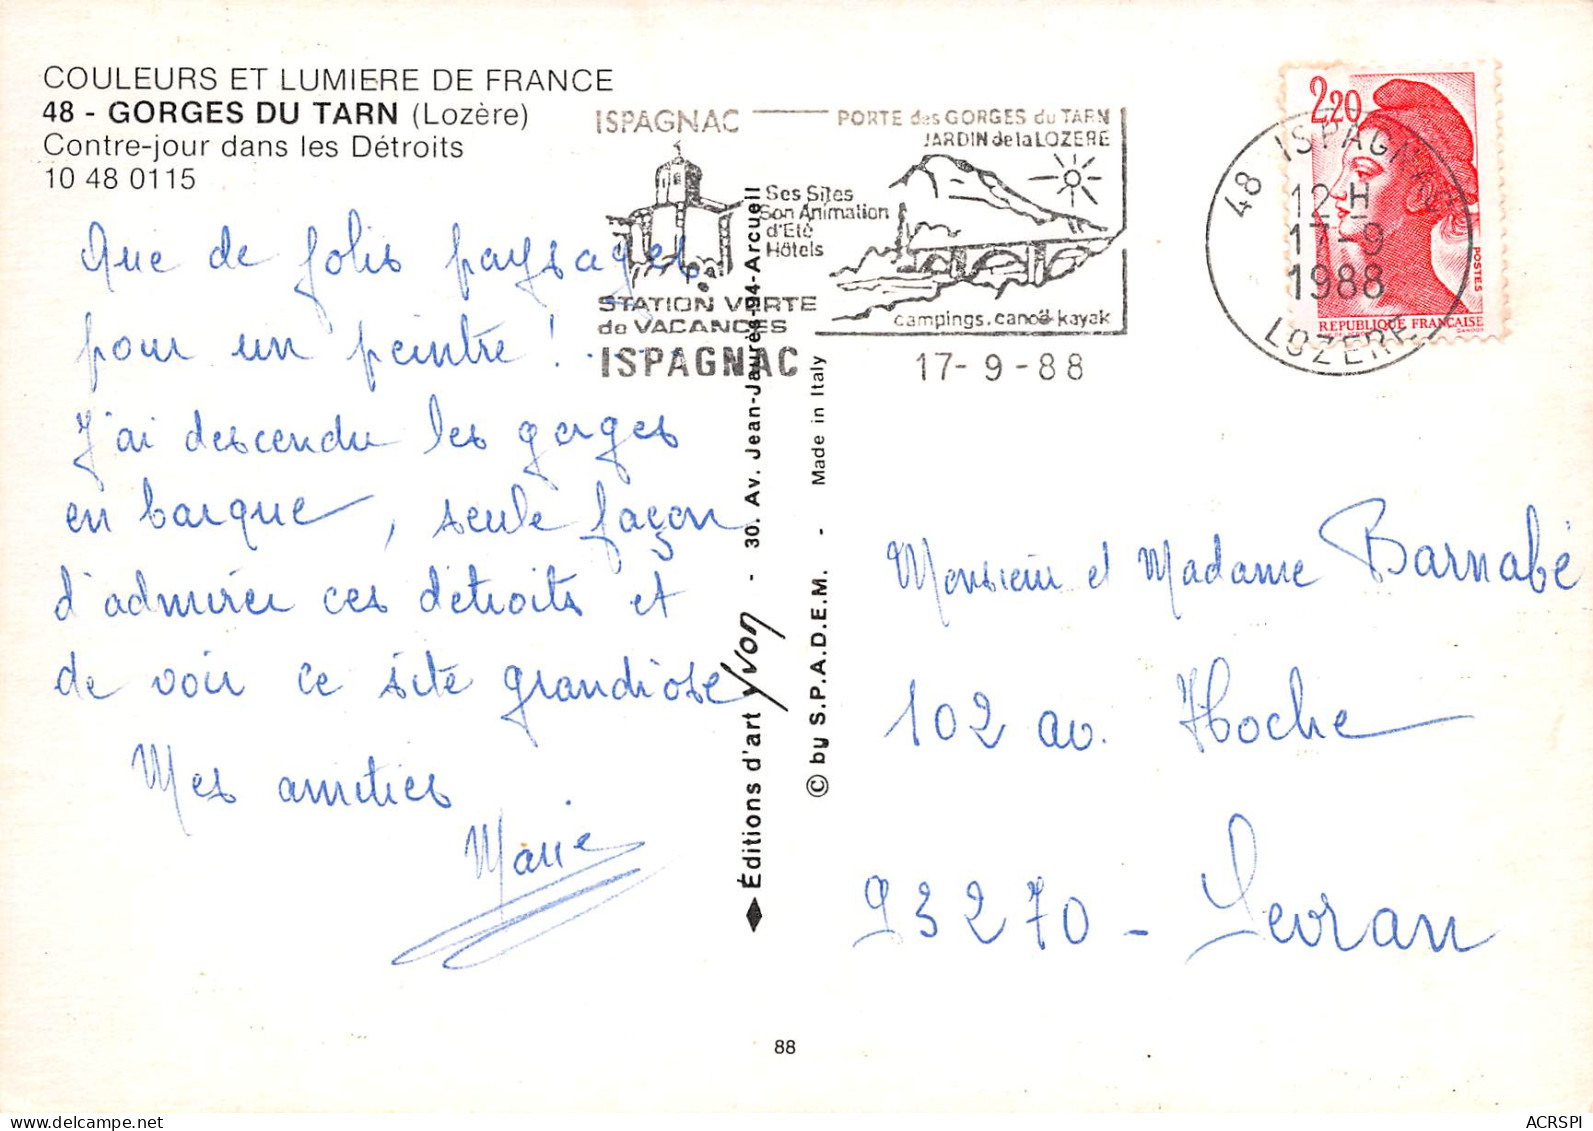 COULEURS ET LUMIERE DE FRANCE
48 - GORGES DU TARN (Lozère)
Contre-jour dans les Détroits
10 48 0115
Que de jolis paysages
pour un peintre ! . . .
J'ai descendu les gorges
en barque, seule façon
d'admirer ces détroits et
de voir ce site grandiose
Mes amitiés
Marie
ISPAGNAC
PORTE des GORGES du TARN
JARDIN de la LOZERE
Ses Sites
Son Animation
d'Eté
Hôtels
STATION VERTE
de VACANCES
ISPAGNAC
campings. canoë-kayak
17-9-88
48 ISPAGNAC
12 H
17-9
1988
LOZERE
2,20
POSTES
REPUBLIQUE FRANÇAISE
GANDON
Éditions d'art Yvon - 30. Av. Jean-Jaurès-94-Arcueil
© by S.P.A.D.E.M. - Made in Italy
Monsieur et Madame Barnabé
102 av. Hoche
93270 - Sevran
88
ACRSPI